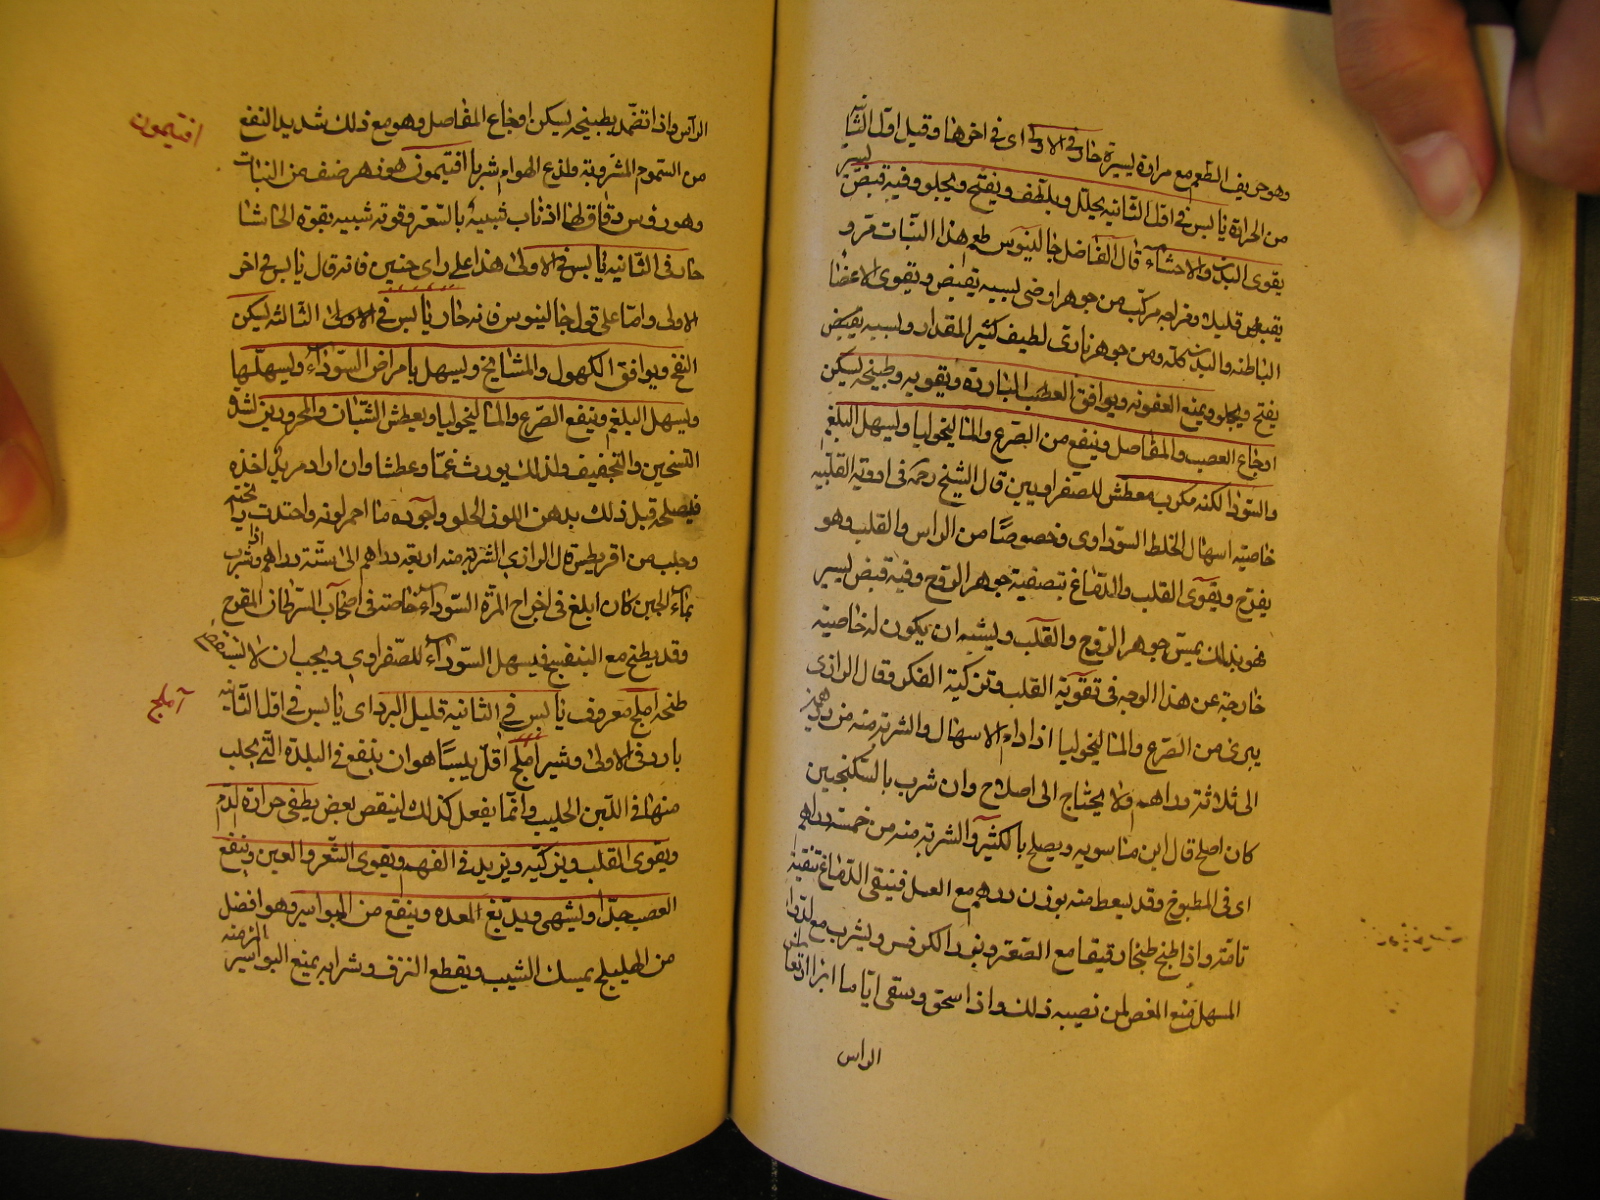 وهو حريف الطعم مع مرارة يسيرة حار فى الاولى اى فى اخرها وقيل اول الثانيه
من الحرارة يابس فى اول الثانيه يحلل ويلطف ويفتح ويجلو وفيه قبض يسير
يقوى البدن والاحشاء قال الفاضل جالينوس طعم هذا النبات مر و
يقبض قليلا ومزاجه مركب من جوهر ارضى بسببه يقبض ويقوى الاعضا
الباطنه والبدن كله ومن جوهر نارى لطيف كثير المقدار وبسببه يقبض
يفتح ويجلو ويمنع العفونه ويوافق العصب الباردة ويقويه وطبيخه يسكن
اوجاع العصب والمفاصل وينفع من الصرع والماليخوليا ويسهل البلغم
والسودا لكنه مكرب معطش للصفراويين قال الشيخ رحمه فى ادوية القلبيه
خاصيته اسهال الخلط السوداوى وخصوصا من الراس والقلب وهو
يفرح ويقوى القلب والدماغ بتصفية جوهر الروح وفيه قبض يسير
فهو بذلك يمسك جوهر الروح والقلب ويشبه ان يكون له خاصية
خارجة عن هذا الوجه فى تقوية القلب وتزكية الفكر وقال الرازى
يبرى من الصرع والماليخوليا اذا دام الاسهال والشربة منه من درهمين
الى ثلاثة دراهم ولا يحتاج الى اصلاح وان شرب بالسكنجبين
كان اصلح قال ابن ماسويه ويصلح بالكثيرا والشربة منه من خمسة دراهم
اى فى المطبوخ وقد يسعط منه بوزن درهم مع العسل فينقى الدماغ تنقية
تامة واذا طبخ طبخا رقيقا مع الصعتر وبزر الكرفس ويشرب مع الدوا
المسهل منع المغص لمن نصيبه ذلك واذا سحق وسقى اياما ابرا ارتعاش
الراس
الراس واذا تضمد بطبيخه يسكن اوجاع المفاصل وهو مع ذلك شديد النفع
افتيمون
من السموم المشروبة ولذع الهوام شربا افتيمون هو زهر صنف من النبات
وهو رؤس دقاق لها اذناب شبيه بالسعتر وقوته شبيه بقوة الحاشا
حار فى الثانيه يابس فى الاولى هذا على راى حنين فانه قال يابس فى اخر
الاولى واما على قول جالينوس فانه حار يابس فى الاولى الثالثه يسكن
النفخ ويوافق الكهول والمشايخ ويسهل بامراض السوداء ويسهلها
ويسهل البلغم وينفع الصرع والماليخوليا ويعطش الشبان والمحرورين لشدة
التسخين والتجفيف ولذلك يورث غما وعطشا وان اراد مريد اخذه
فليصلحه قبل ذلك بدهن اللوز الحلو واجوده ما احمر لونه واحتدت رايحته
وجلب من اقريطش قال الرازى الشربة منه اربعة دراهم الى ستة دراهم واذا شرب
بماء الجبن كان ابلغ فى اخراج المرة السوداء خاصة فى اصحاب السرطان المقرح
وقد يطبخ مع البنفسج فيسهل السوداء للصفراوى ويجب ان لا يستقصى
آملج
طبخه املج معروف يابس فى الثانيه قليل البرد اى يابس فى اول الثانيه
بارد فى الاولى وشير املج اقل يبسا هو ان ينقع فى البلدة التى يجلب
منها فى اللبن الحليب وانما يفعل كذلك لينقص بعض يطفى حرارة الدم
ويقوى القلب ويزكيه ويزيد فى الفهم ويقوى الشعر والعين وينفع
العصب جدا ويشهى ويدبغ المعده وينفع من البواسير وهو افضل
من الهليلج يمسك الشيب ويقطع النزف وشرابه يمنع البواسير المزمنه